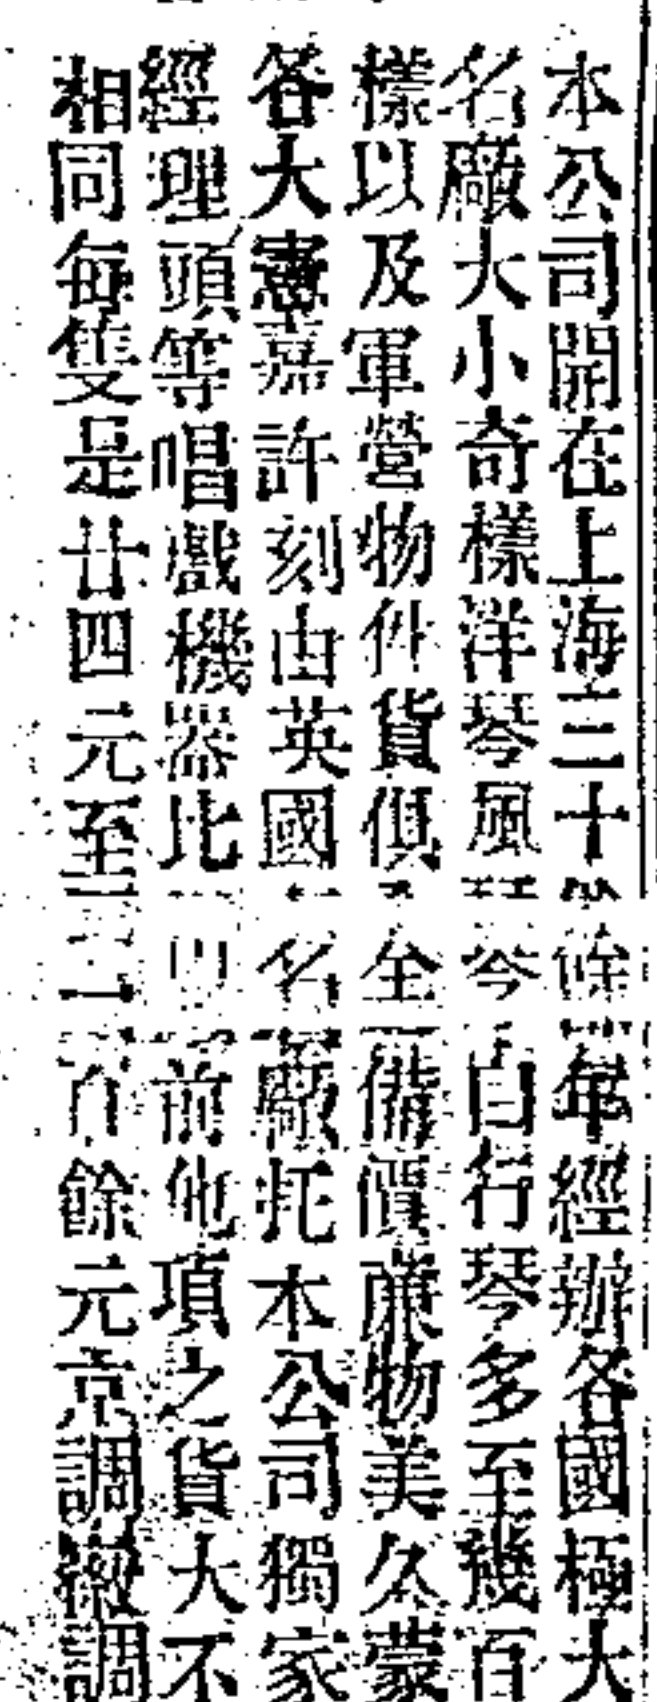 本公司開在上海三十餘年經辦各國極大
名廠大小奇樣洋琴風琴自行琴多至幾百
樣以及軍營物件貨俱全備價廉物美久蒙
各大憲嘉許刻由英國名廠托本公司獨家
經理頭等唱戲機器比前他項之貨大不
相同每隻是廿四元至二百餘元京調徽調